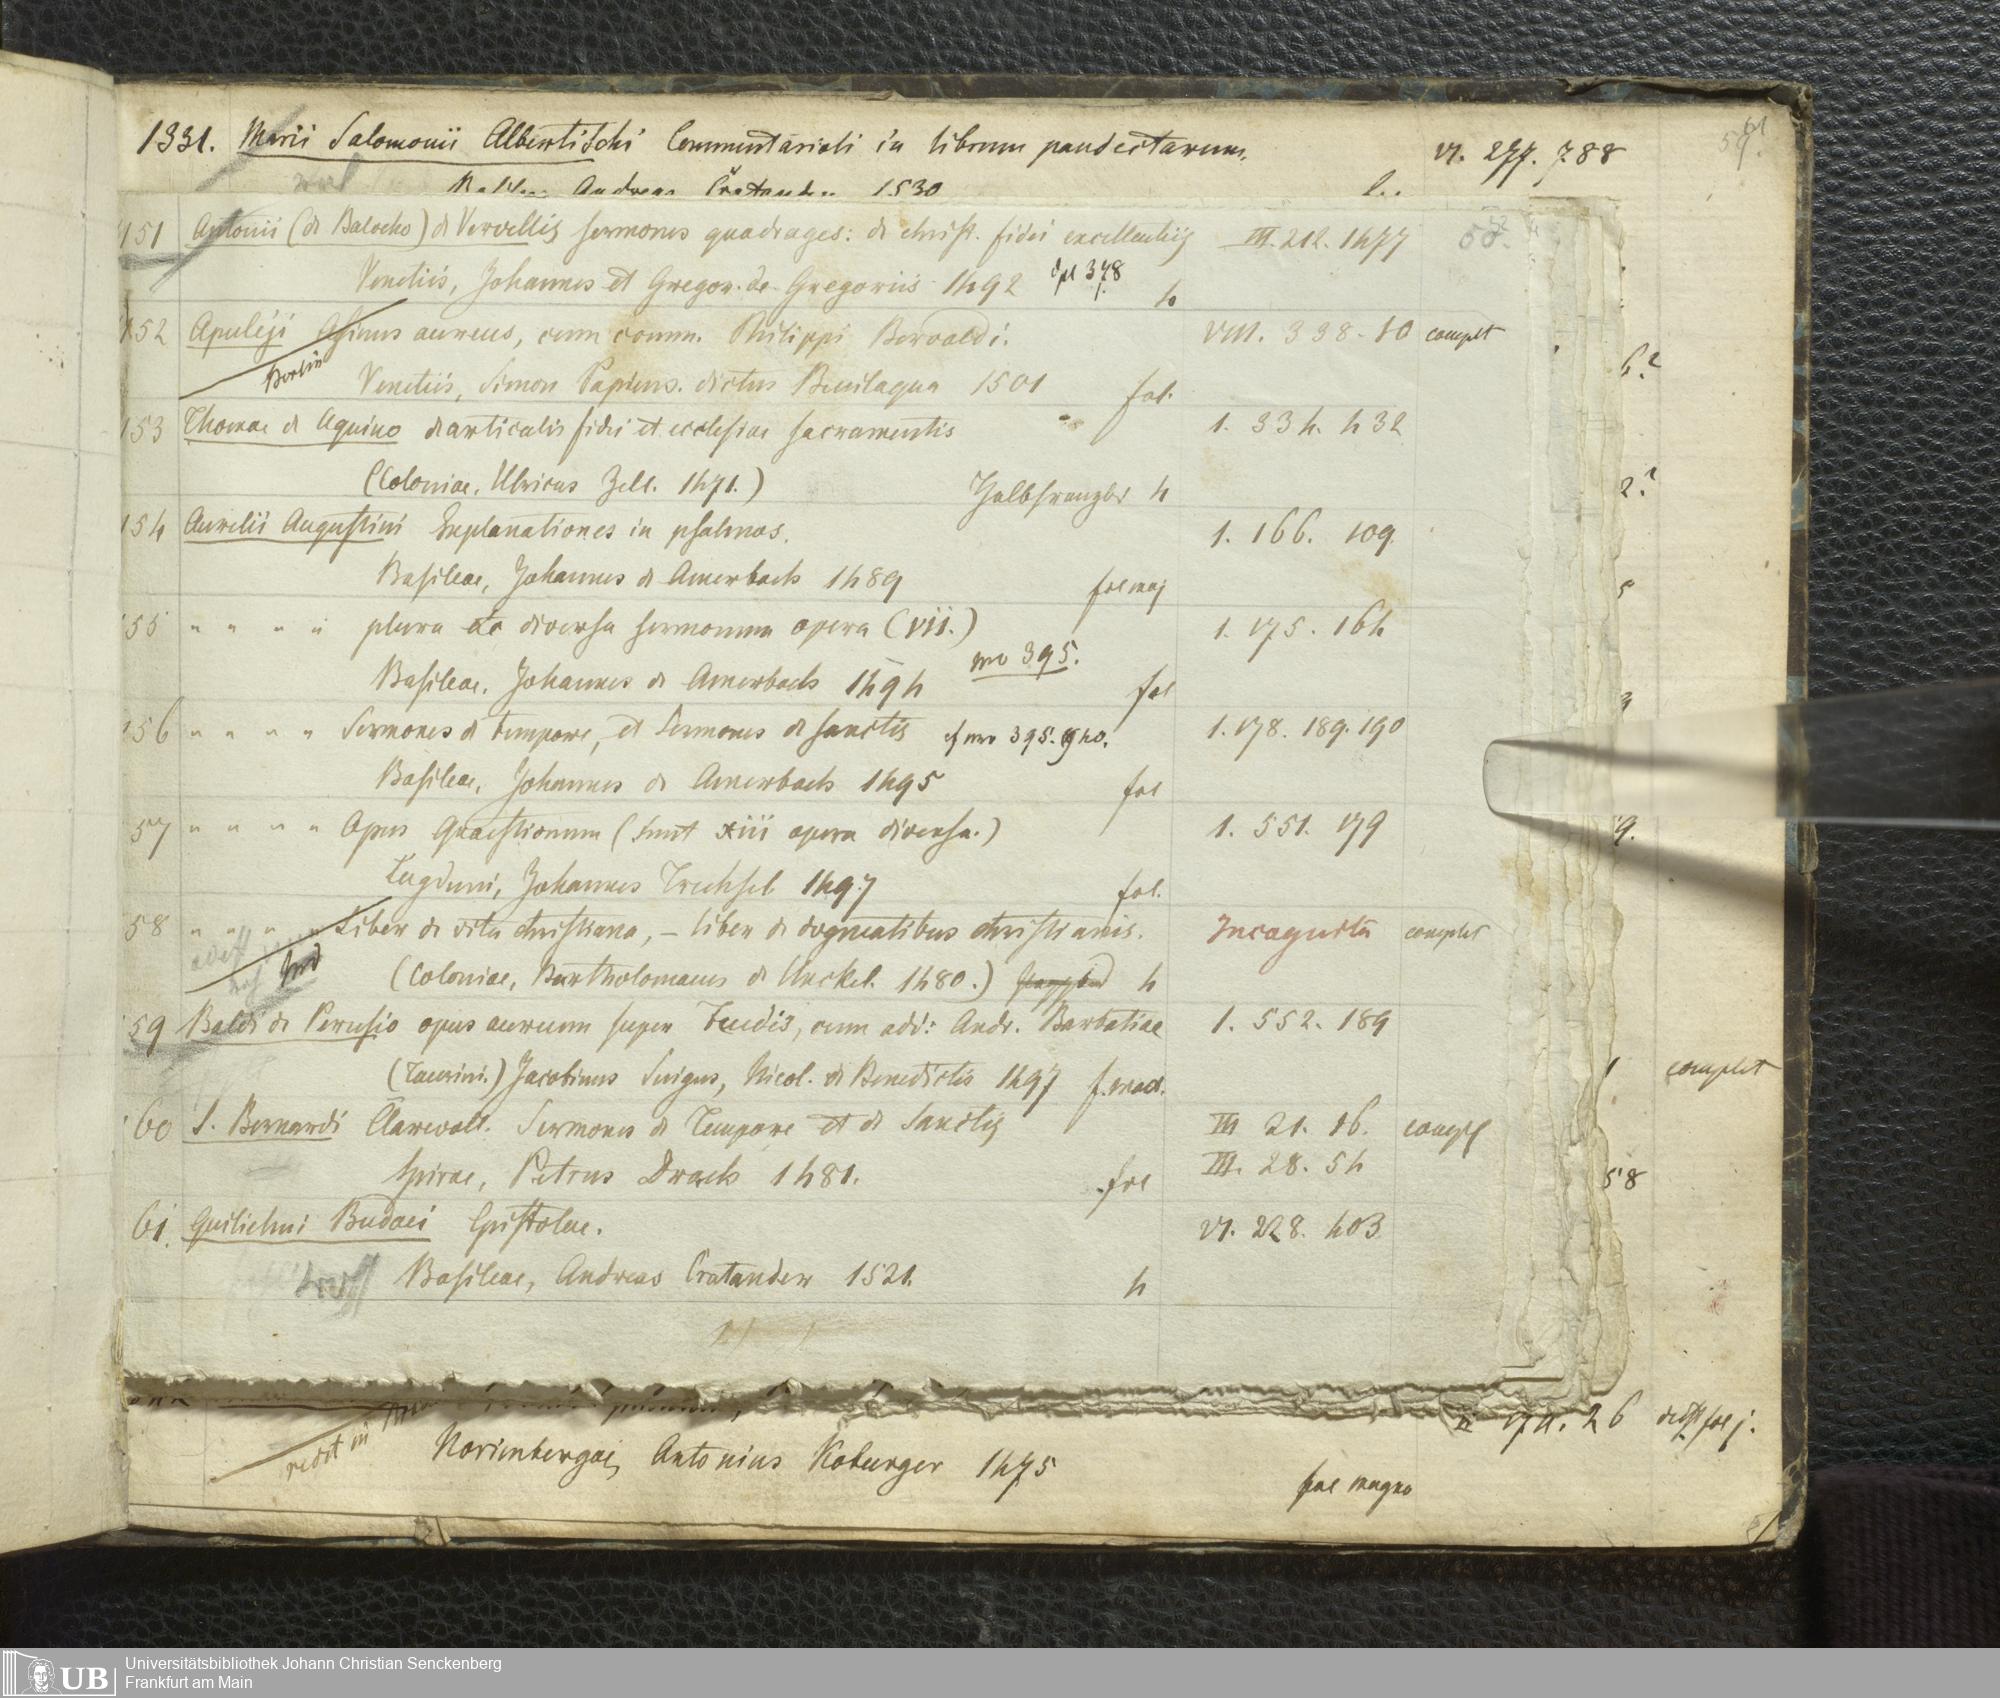 1331. Marii Salomonii Albertischi Commentarioli in librum pandectarum. VI. 277. 788
Andreas Cratander 1530
151 Antonii (de Balocho) de Vercellis sermones quadrages: de christ. fidei excellentiis III. 212. 1477
Venetiis, Johannes et Gregor. de Gregoriis 1492 378 4
152 Apuleji Asinus aureus, cum comm. Philippi Beroaldi. VIII. 338-10 complet
Berlin Venetiis, Simon Papiens. dictus Bevilaqua 1501 fol.
153 Thomae de Aquino de articulis fidei et ecclesiae sacramentis 1. 334. 432
(Coloniae, Ulricus Zell. 1471.) Halbfranzbd 4
154 Aurelii Augustini Explanationes in psalmos. 1. 166. 109.
Basileae, Johannes de Amerbach 1489 fol maj
55 " " " " plura ac diversa sermonum opera (VII.) 1. 175. 164
Basileae, Johannes de Amerbach 1494 no 395. fol
156 " " " " Sermones de tempore, et Sermones de sanctis cf no 395. 1. 178. 189. 190
Basileae, Johannes de Amerbach 1495 fol
57 " " " " Opus Quaestionum (sunt xiii opera diversa.) 1. 551. 179
Lugduni, Johannes Trechsel 1497 fol.
58 " " " " Liber de vita christiana, – liber de dogmatibus christianis. Incagurta complet
(Coloniae, Bartholomaeus de Unckel. 1480.) 4
59 Baldi de Perusio opus aureum super Feudis, cum add: Andr. Barbatiae 1. 552. 189
(Taurini.) Jacobinus Suigus, Nicol. de Benedictis 1497 f. med.
60 S. Bernardi Clarevall. Sermones de Tempore et de Sanctis III 21. 16. compl
Spirae, Petrus Drach 1481. fol III. 28. 54
61. Guilielmi Budaei Epistolae. VI. 228. 403
Basileae, Andreas Cratander 1521. 4
II 74. 26
redit in
Norimbergae, Antonius Koburger 1475 fol magno
complet
58
Universitätsbibliothek Johann Christian Senckenberg
Frankfurt am Main
UB